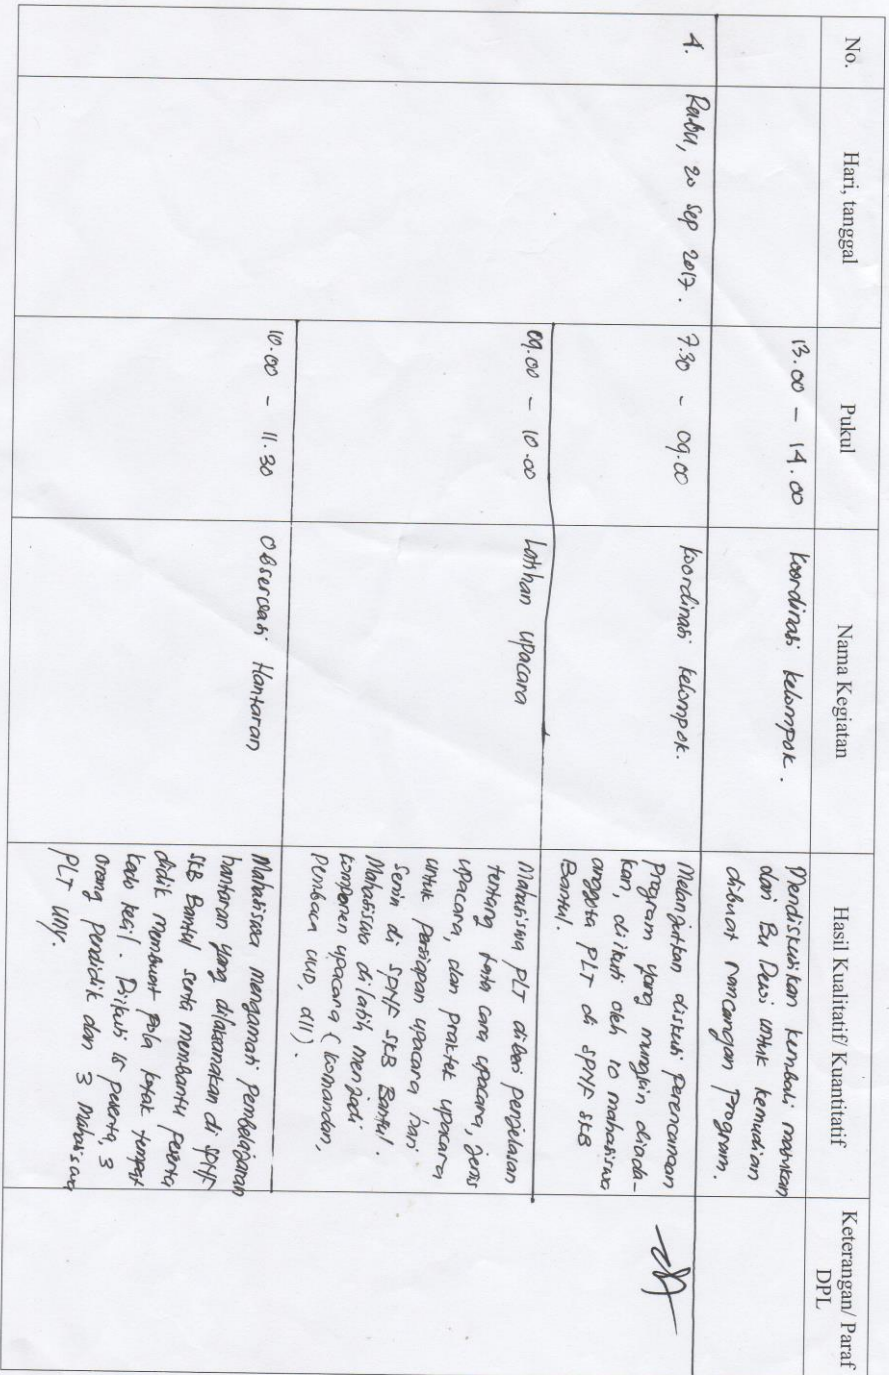 No. Hari, tanggal Pukul Nama Kegiatan Hasil Kualitatif/ Kuantitatif Keterangan/ Paraf
DPL
13.00 - 14.00 Koordinasi kelompok. Mendiskusikan kembali masukan
dari Bu Dewi untuk kemudian
dibuat rancangan program.
4. Rabu, 20 Sep 2017. 7.30 - 09.00 Koordinasi kelompok. Melanjutkan diskusi perencanaan
program yang mungkin diada-
kan, diikuti oleh 10 mahasiswa
anggota PLT di SPNF SKB
Bantul.
09.00 - 10.00 Latihan upacara Mahasiswa PLT diberi penjelasan
tentang tata cara upacara, jenis
upacara, dan praktek upacara
untuk persiapan upacara hari
Senin di SPNF SKB Bantul.
Mahasiswa dilatih menjadi
komponen upacara (komandan,
pembaca UUD, dll).
10.00 - 11.30 Observasi Hantaran Mahasiswa mengamati pembelajaran
hantaran yang dilaksanakan di SPNF
SKB Bantul serta membantu peserta
didik membuat pola kotak tempat
kado kecil. Diikuti 15 peserta, 3
orang pendidik dan 3 mahasiswa
PLT UNY.